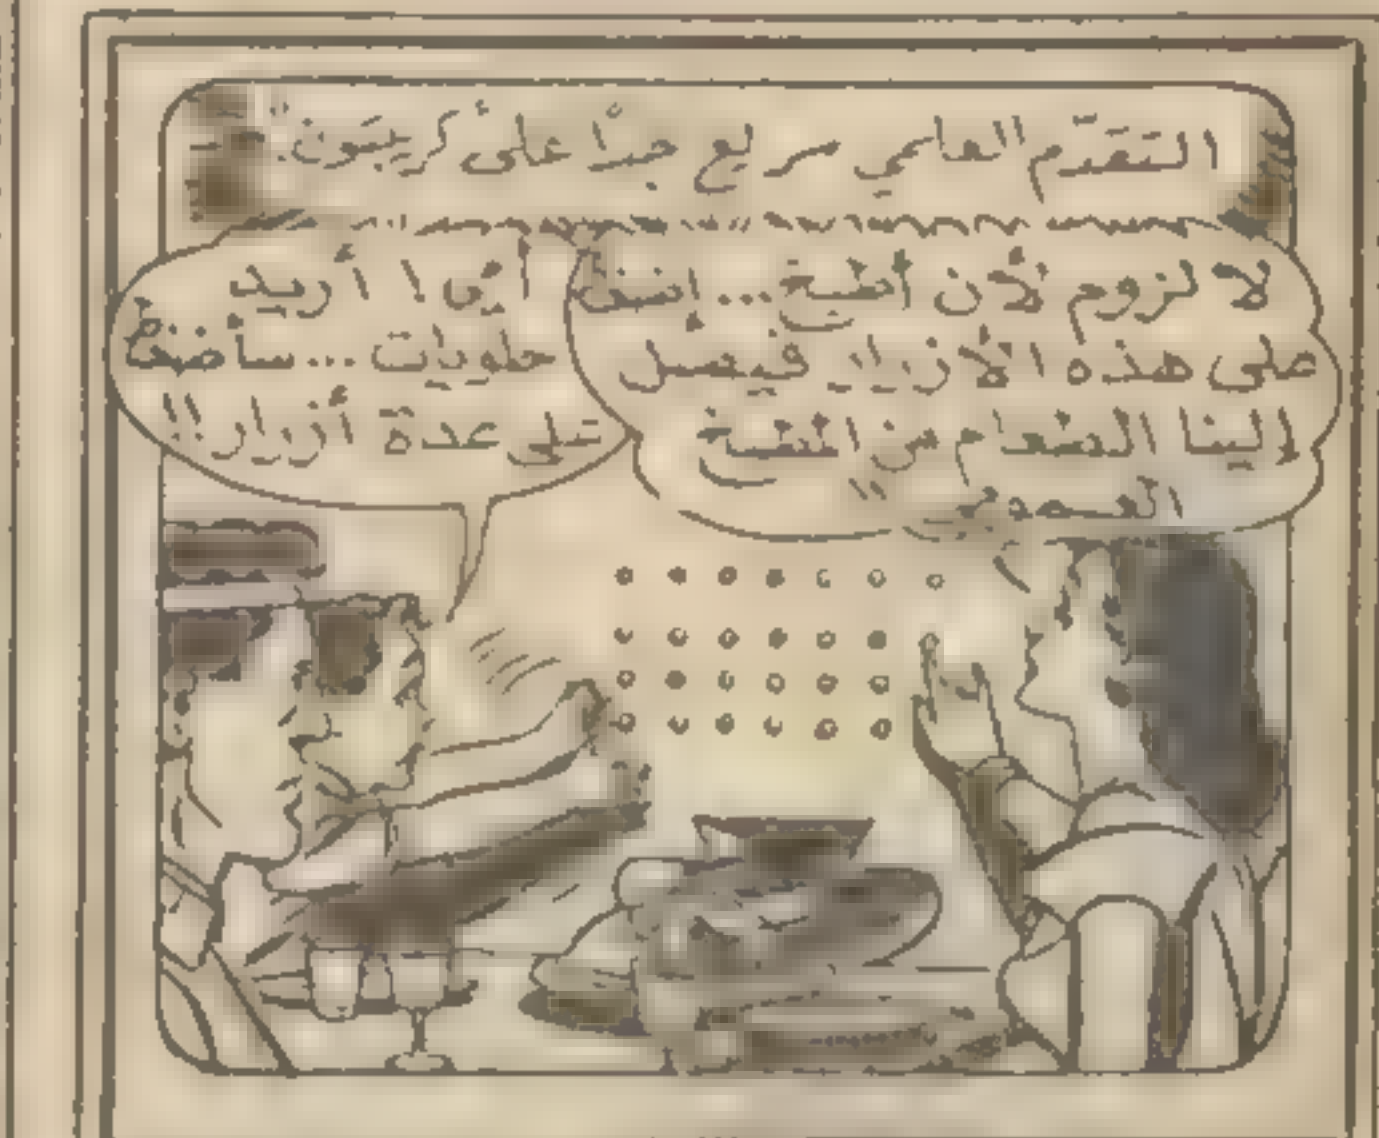 التقدّم العلمي سريع جدًّا على كريبتون
لا لزوم لأن أطبخ... اضغط
على هذه الأزرار فيصل
إلينا الطعام من المطبخ
العمومي!!
أمي! أريد
حلويات... سأضغط
على عدة أزرار!!